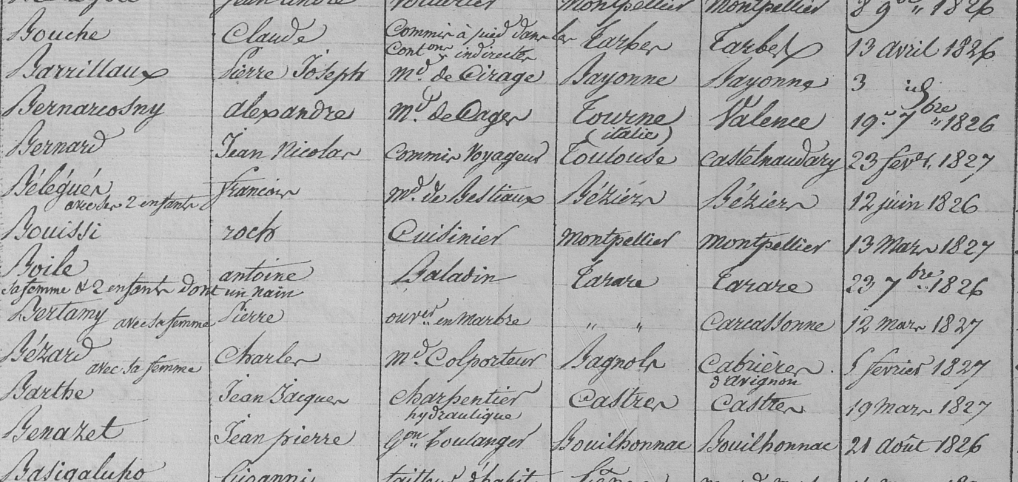 Jean André Montpellier Montpellier 8 9bre 1826
Bouche Claude Commis à pied dans les Tarbes Tarbes 13 avril 1826
Contons indirectes
Barrillaux Pierre Joseph Md de Cirage Bayonne Bayonne 3 id
Bernarcosny alexandre Md de Linger Tourne Valence 19 7bre 1826
(italie)
Bernard Jean Nicolas Commis Voyageur Toulouse Castelnaudary 23 fevr. 1827
Béléguér françois Md de Bestiaux Béziérs Béziérs 12 juin 1826
avec ses 2 enfants
Bouissi roch Cuisinier Montpellier Montpellier 13 Mars 1827
Boile antoine Baladin Tarare Tarare 23 7bre 1826
sa femme & 2 enfants dont un nain
Bertamy avec sa femme Pierre ouvrr en Marbre " " Carcassonne 12 mars 1827
Bézard Charles Md Colporteur Bagnols Cabrières 5 février 1827
avec sa femme d'avignon
Barthe Jean Jacques Charpentier Castres Castres 19 Mars 1827
hydraulique
Benazet Jean pierre Gon boulanger Bouilhonnac Bouilhonnac 21 août 1826
Basigalupo tailleur d'habit